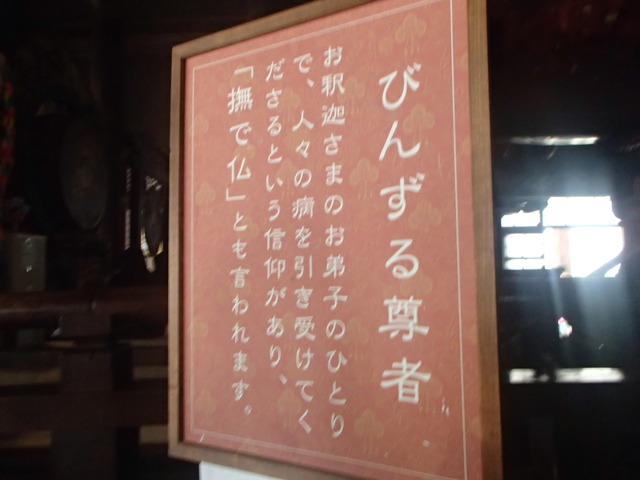 びんずる尊者
お釈迦さまのお弟子のひとり
で、人々の病を引き受けてく
ださるという信仰があり、
「撫で仏」とも言われます。